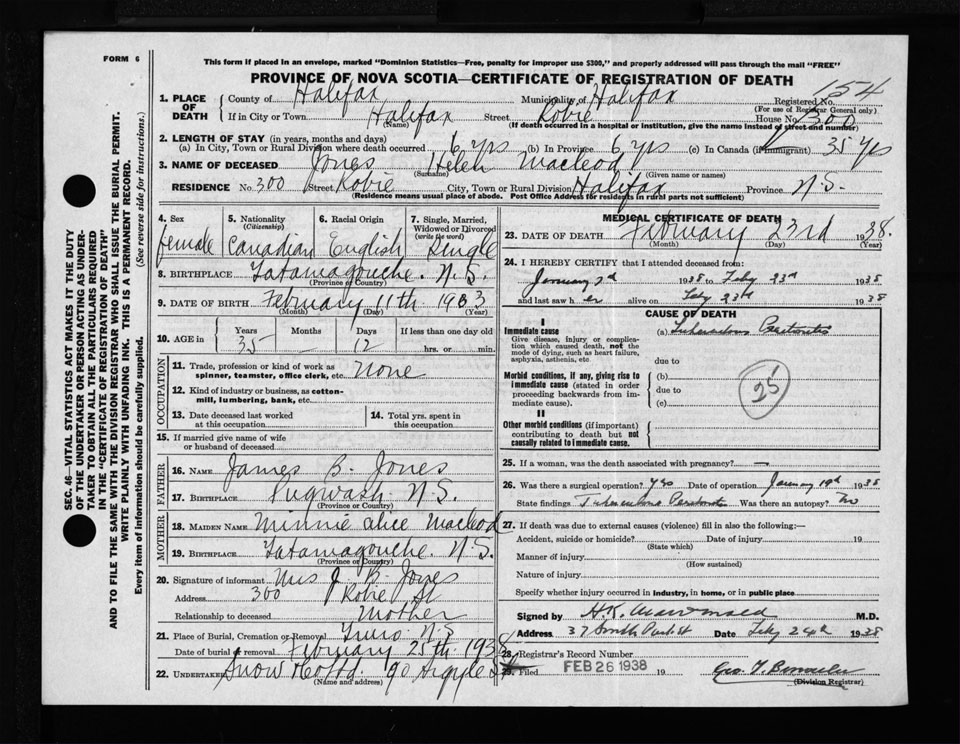 FORM 6
This form if placed in an envelope, marked "Dominion Statistics—Free, penalty for improper use $300," and properly addressed will pass through the mail "FREE"
PROVINCE OF NOVA SCOTIA—CERTIFICATE OF REGISTRATION OF DEATH
154
1. PLACE OF DEATH County of Halifax Municipality of Halifax Registered No.
(For use of Registrar General only)
If in City or Town Halifax Street Robie House No. 300
(Name) (If death occurred in a hospital or institution, give the name instead of street and number)
2. LENGTH OF STAY (in years, months and days)
(a) In City, Town or Rural Division where death occurred 6 yrs (b) In Province 6 yrs (c) In Canada (if immigrant) 35 yrs
3. NAME OF DECEASED Jones Helen Macleod
(Surname) (Given name or names)
RESIDENCE No. 300 Street Robie City, Town or Rural Division Halifax Province N.S.
(Residence means usual place of abode. Post Office Address for residents in rural parts not sufficient)
4. Sex 5. Nationality (Citizenship) 6. Racial Origin 7. Single, Married, Widowed or Divorced (write the word)
female Canadian English Single
8. BIRTHPLACE Tatamagouche. N.S.
(Province or Country)
9. DATE OF BIRTH February 11th 1903
(Month) (Day) (Year)
10. AGE in Years Months Days If less than one day old
35 — 12 hrs. or min.
OCCUPATION
11. Trade, profession or kind of work as spinner, teamster, office clerk, etc. None
12. Kind of industry or business, as cotton-mill, lumbering, bank, etc.
13. Date deceased last worked at this occupation
14. Total yrs. spent in this occupation
15. If married give name of wife or husband of deceased
FATHER
16. NAME James B. Jones
17. BIRTHPLACE Pugwash N.S.
(Province or Country)
MOTHER
18. MAIDEN NAME Minnie Alice Macleod
19. BIRTHPLACE Tatamagouche. N.S.
(Province or Country)
20. Signature of informant Mrs J. B. Jones
Address 300 Robie St
Relationship to deceased Mother
21. Place of Burial, Cremation or Removal Truro N.S
Date of burial or removal February 25th 1938
22. UNDERTAKER Snow & Co Ltd. 90 Argyle St
(Name and address)
MEDICAL CERTIFICATE OF DEATH
23. DATE OF DEATH February 23rd 1938.
(Month) (Day) (Year)
24. I HEREBY CERTIFY that I attended deceased from:
January 1938 to Feby 23rd 1938
and last saw her alive on Feby 23rd 1938
CAUSE OF DEATH
I
Immediate cause (a) Tuberculous Peritonitis
Give disease, injury or complication which caused death, not the mode of dying, such as heart failure, asphyxia, asthenia, etc
due to
Morbid conditions, if any, giving rise to immediate cause (stated in order proceeding backwards from immediate cause). (b)
due to
(c)
25
II
Other morbid conditions (if important) contributing to death but not causally related to immediate cause.
25. If a woman, was the death associated with pregnancy? —
26. Was there a surgical operation? yes Date of operation January 19th 1938
State findings Tuberculous Peritonitis Was there an autopsy? No
27. If death was due to external causes (violence) fill in also the following:—
Accident, suicide or homicide? Date of injury 19
(State which)
Manner of injury
(How sustained)
Nature of injury
Specify whether injury occurred in industry, in home, or in public place
Signed by H.K. MacDonald M.D.
Address 37 South Park St Date Feby 24th 1938
28. Registrar's Record Number
29. Filed FEB 26 1938 19
(Division Registrar)
SEC. 46—VITAL STATISTICS ACT MAKES IT THE DUTY
OF THE UNDERTAKER OR PERSON ACTING AS UNDER-
TAKER TO OBTAIN ALL THE PARTICULARS REQUIRED
IN THE "CERTIFICATE OF REGISTRATION OF DEATH"
AND TO FILE THE SAME WITH THE DIVISION REGISTRAR WHO SHALL ISSUE THE BURIAL PERMIT.
WRITE PLAINLY WITH UNFADING INK. THIS IS A PERMANENT RECORD.
Every item of information should be carefully supplied. (See reverse side for instructions.)